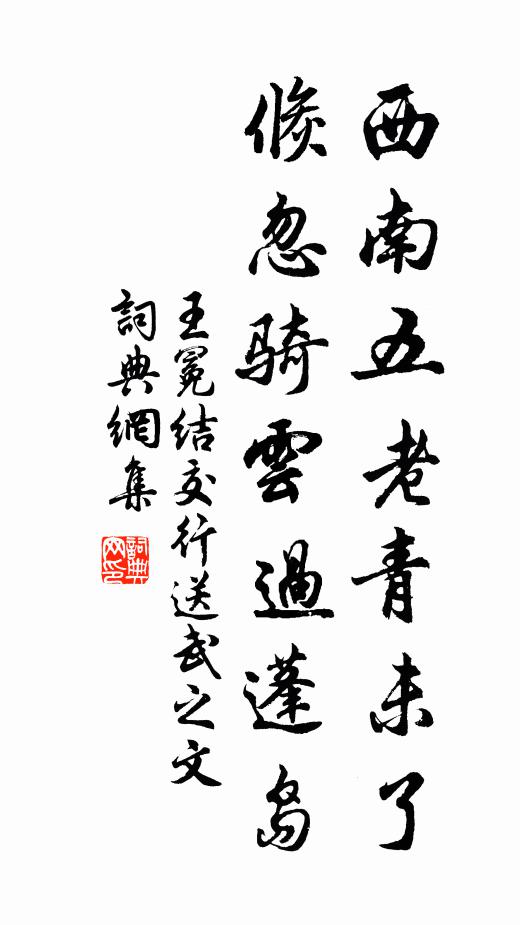 西南五老青未了
倐忽騎雲過蓬島
王冕結交行送武之文
詞典網集
詞典網印